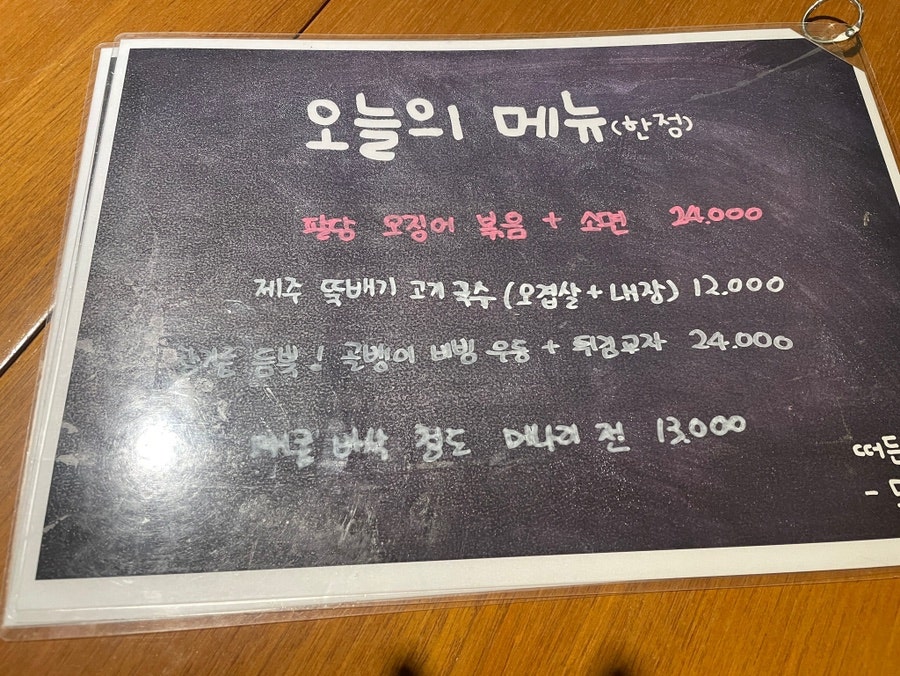 오늘의 메뉴 (한정)
팔당 오징어 볶음 + 소면 24.000
제주 뚝배기 고기국수 (오겹살 + 내장) 12.000
듬뿍! 골뱅이 비빔 우동 + 튀김교자 24.000
바삭 청도 미나리 전 13,000
떠든
-